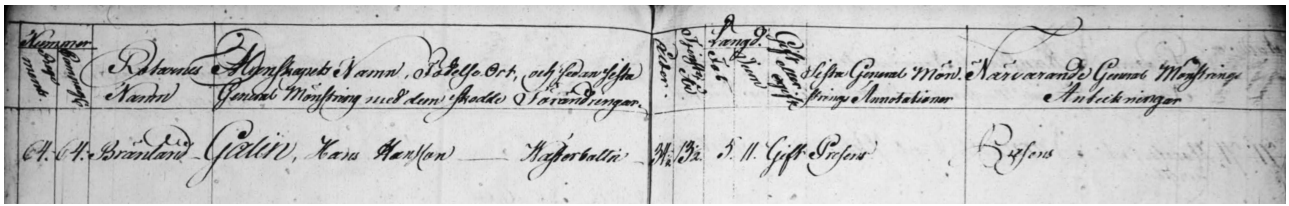 Nummer
Regements. Compagnie
Rotarnes Namn
Manskapets Namn, Födelse Ort, och sedan sista General Mönstring med dem skedde Förändringar.
Ålder.
Tjenste År
Längd. Fot Tum
Gift eller ogift
Sista General Mönstrings Annotationer
Närvarande General Mönstrings Anteckningar
64. 64. Brånland Galin, Hans Hansson Westerbotten 34½ 13½ 5. 11. Gift Presens Presens